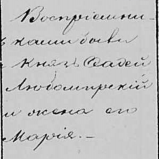 Воспріемни-
ками были
Князь Фадей
Любомирскій
и жена его
Марія. —